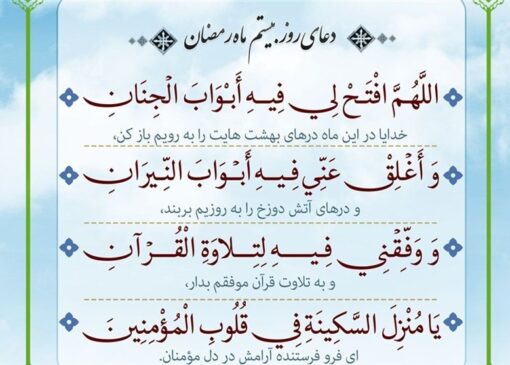 دعای روز بیستم ماه رمضان
اللَّهُمَّ افْتَحْ لِي فِيهِ أَبْوَابَ الْجِنَانِ
خدایا در این ماه درهای بهشت هایت را به رویم باز کن،
وَ أَغْلِقْ عَنِّي فِيهِ أَبْوَابَ النِّيرَانِ
و درهای آتش دوزخ را به روزیم بربند،
وَ وَفِّقْنِي فِيهِ لِتِلاوَةِ الْقُرْآنِ
و به تلاوت قرآن موفقم بدار،
يَا مُنْزِلَ السَّكِينَةِ فِي قُلُوبِ الْمُؤْمِنِينَ
ای فرو فرستنده آرامش در دل مؤمنان.